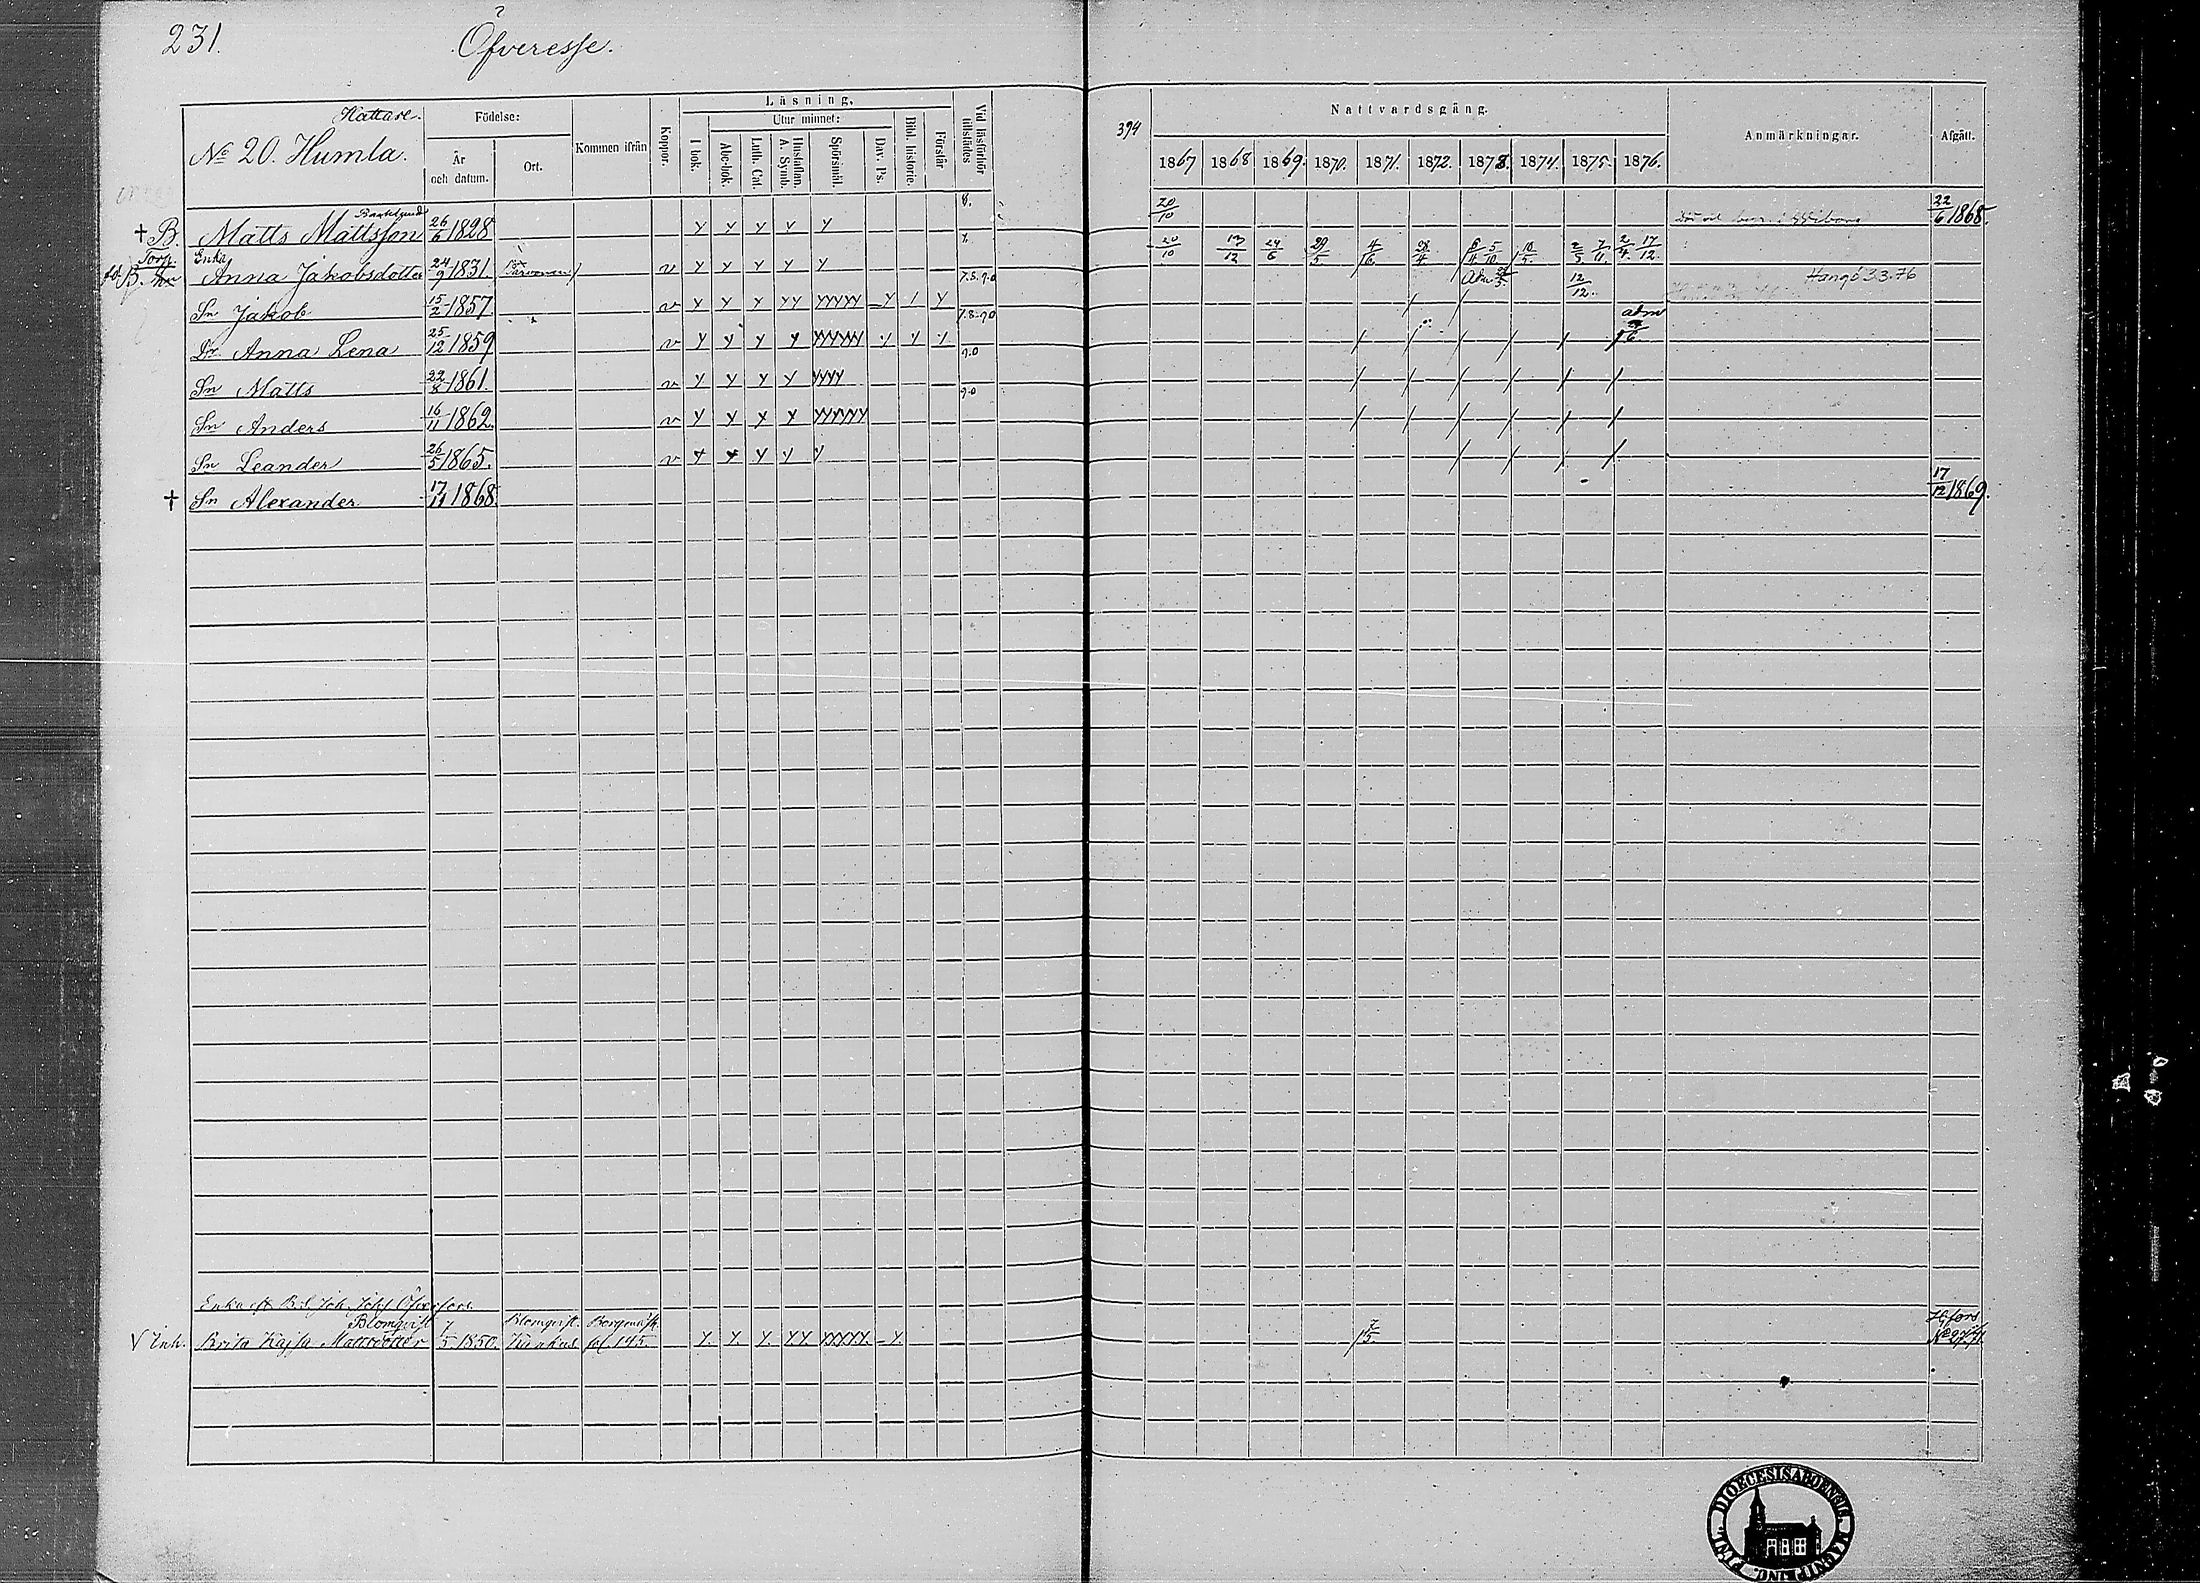 231. Öfveresse.
Hattare.
No 20. Humla.
Födelse:
År och datum.
Ort.
Kommen ifrån
Koppor.
Läsning.
I bok.
Utur minnet:
Abc-bok.
Luth. Cat.
Hustaflan. A. Symb.
Spörsmål.
Dav. Ps.
Bibl. historie.
Förstår
Vid läsförhör tillstädes.
394
Nattvardsgång.
1867 1868 1869. 1870. 1871. 1872. 1873. 1874. 1875. 1876.
Anmärkningar.
Afgått.
† B. Matts Mattsson 26/6 1828 y y y y y 8. 20/10 22/6 1868.
Torp. Enka
B. Anna Jakobsdotter 24/9 1831. v y y y y y 20/10 13/12 24/6 29/5 4/6 28/4 5/10 10/5 2/5 7/11 2/4 17/12
Sn Jakob 15/2 1857. v y y y yy yyyyy y 1 y 7.8.9.0 Adm 12/12. Hangö 33.76
Dr Anna Lena 25/12 1859 v y y y y yyyyy y 1 1 7.8.9.0 adm
Sn Matts 22/8 1861. v y y y y yyyy 9.0
Sn Anders 16/11 1862. v y y y y yyyyy 9.0
Sn Leander 26/5 1865. v y y y y y
† Sn Alexander 17/11 1868. 17/12 1869.
Enka eft.
Blomqvist Blomqvist. Hfors
Inh. Brita Kajsa Mattsdotter 7/5 1850. fol. 145. y. y. y. yy yyyyy y. 7/5
DIOECESIS ABOENSIS. MAGNI PRINC. FINL.